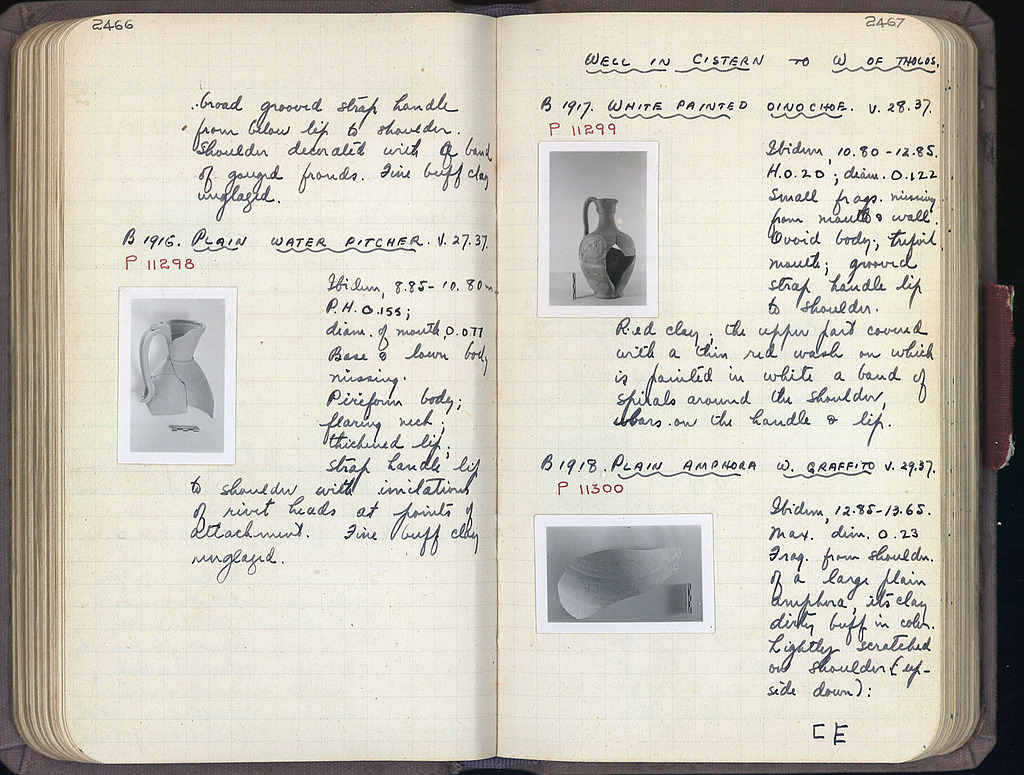 2466
broad grooved strap handle
from below lip to shoulder.
Shoulder decorated with a band
of gouged fronds. Fine buff clay
unglazed.
B 1916. PLAIN WATER PITCHER. V. 27.37.
P 11298
Ibidem, 8.85-10.80 m.
P.H. 0.155;
diam. of mouth, 0.077
Base & lower body
missing.
Piriform body;
flaring neck;
thickened lip;
strap handle lip
to shoulder with imitations
of rivet heads at points of
attachment. Fine buff clay
unglazed.
2467
WELL IN CISTERN TO W OF THOLOS.
B 1917. WHITE PAINTED OINOCHOE. V. 28.37.
P 11299
Ibidem, 10.80-12.85.
H. 0.20; diam. 0.122
Small frags. missing
from mouth & wall.
Ovoid body; trefoil
mouth; grooved
strap handle lip
to shoulder.
Red clay; the upper part covered
with a thin red wash on which
is painted in white a band of
spirals around the shoulder,
bars on the handle & lip.
B 1918. PLAIN AMPHORA W. GRAFFITO V. 29.37.
P 11300
Ibidem, 12.85-13.65.
Max. dim. 0.23
Frag. from shoulder
of a large plain
amphora, its clay
dirty buff in color.
Lightly scratched
on shoulder (up-
side down):
C E